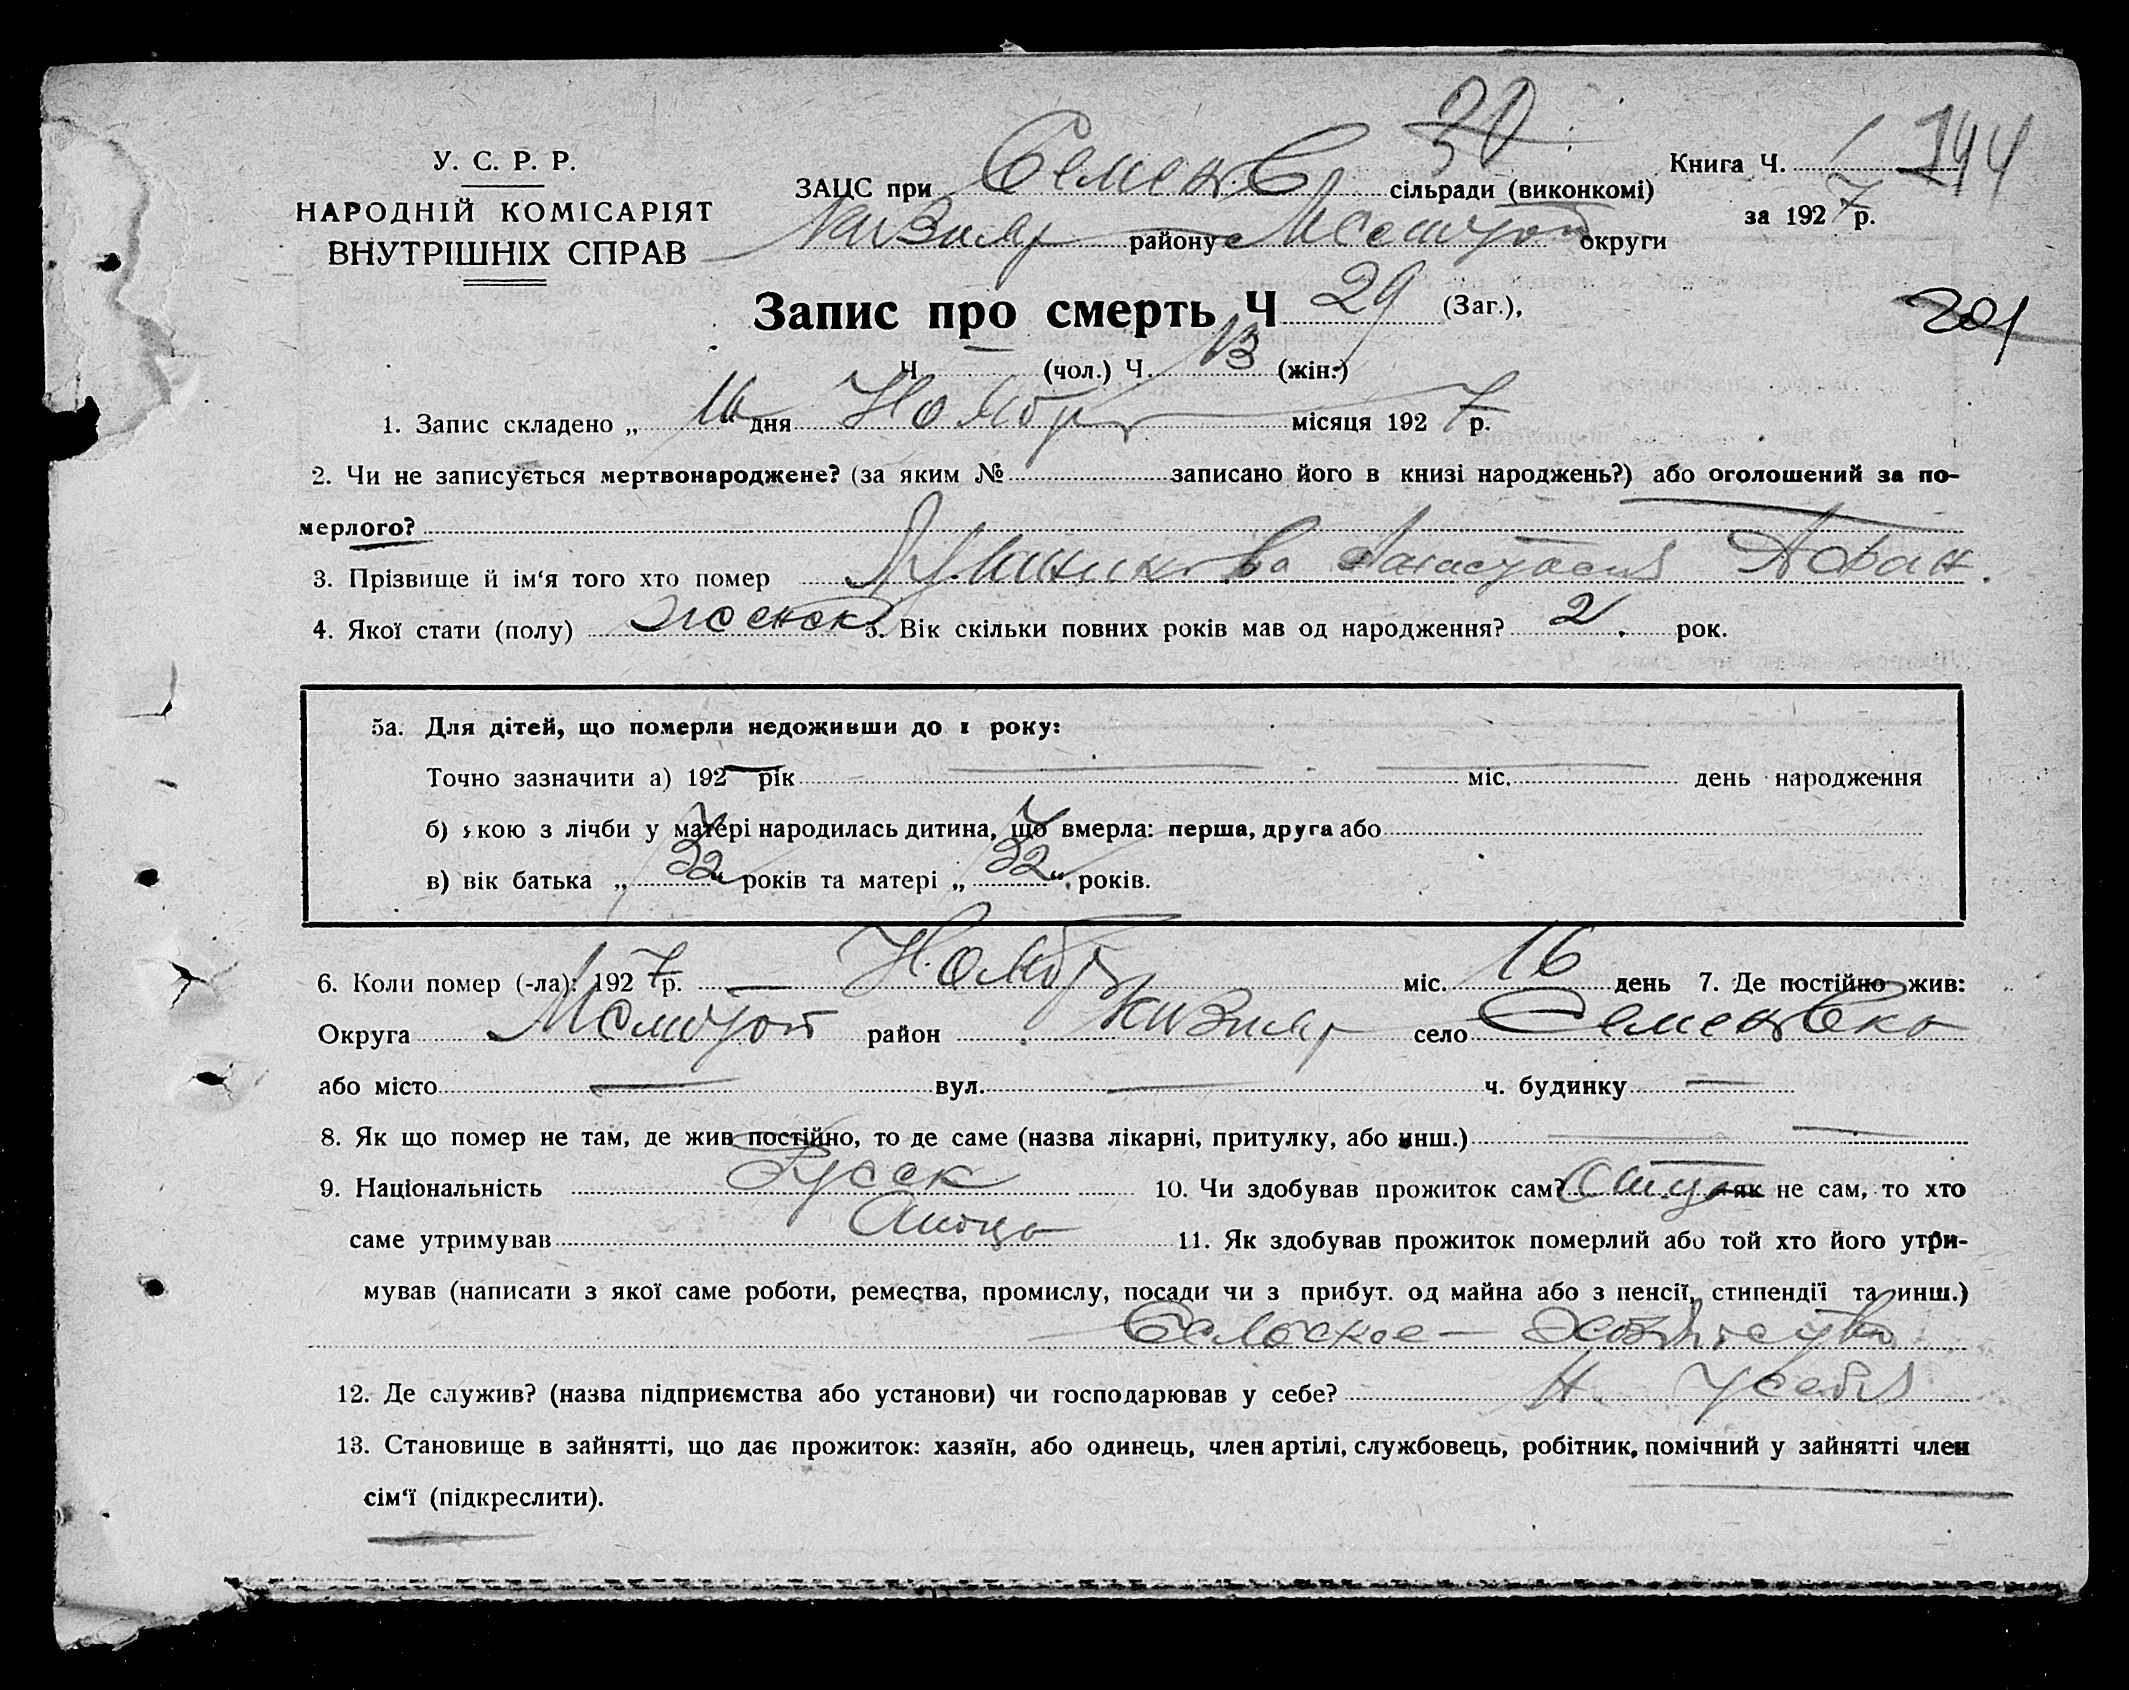 У. С. Р. Р.
НАРОДНІЙ КОМІСАРІЯТ
ВНУТРІШНІХ СПРАВ
30
ЗАЦС при Семенов сільради (виконкомі)
району округи
Книга Ч. 1 144
за 1927 р.
201
Запис про смерть Ч 29 (Заг.),
Ч. (чол.) Ч. 13 (жін.)
1. Запис складено „ 16 “ дня Ноября місяця 1927 р.
2. Чи не записується мертвонароджене? (за яким № записано його в книзі народжень?) або оголошений за по-
мерлого?
3. Прізвище й ім‘я того хто помер Анастасия Афан.
4. Якої стати (полу) женск 5. Вік скільки повних років мав од народження? 2 рок.
5а. Для дітей, що померли недоживши до 1 року:
Точно зазначити а) 192 рік міс. день народження
б) якою з лічби у матері народилась дитина, що вмерла: перша, друга або
в) вік батька „ 32 “ років та матері „ 32 “ років.
6. Коли помер (-ла): 1927 р. Ноябр міс. 16 день 7. Де постійно жив:
Округа Мелитоп район село Семеновка
або місто — вул. — ч. будинку —
8. Як що помер не там, де жив постійно, то де саме (назва лікарні, притулку, або инш.) —
9. Національність Русск 10. Чи здобував прожиток сам? як не сам, то хто
саме утримував 11. Як здобував прожиток померлий або той хто його утри-
мував (написати з якої саме роботи, ремества, промислу, посади чи з прибут. од майна або з пенсії, стипендії та инш.)
Сельское — хозяйство
12. Де служив? (назва підприємства або установи) чи господарював у себе? у себя
13. Становище в зайнятті, що дає прожиток: хазяїн, або одинець, член артілі, службовець, робітник, помічний у зайнятті член
сім‘ї (підкреслити).